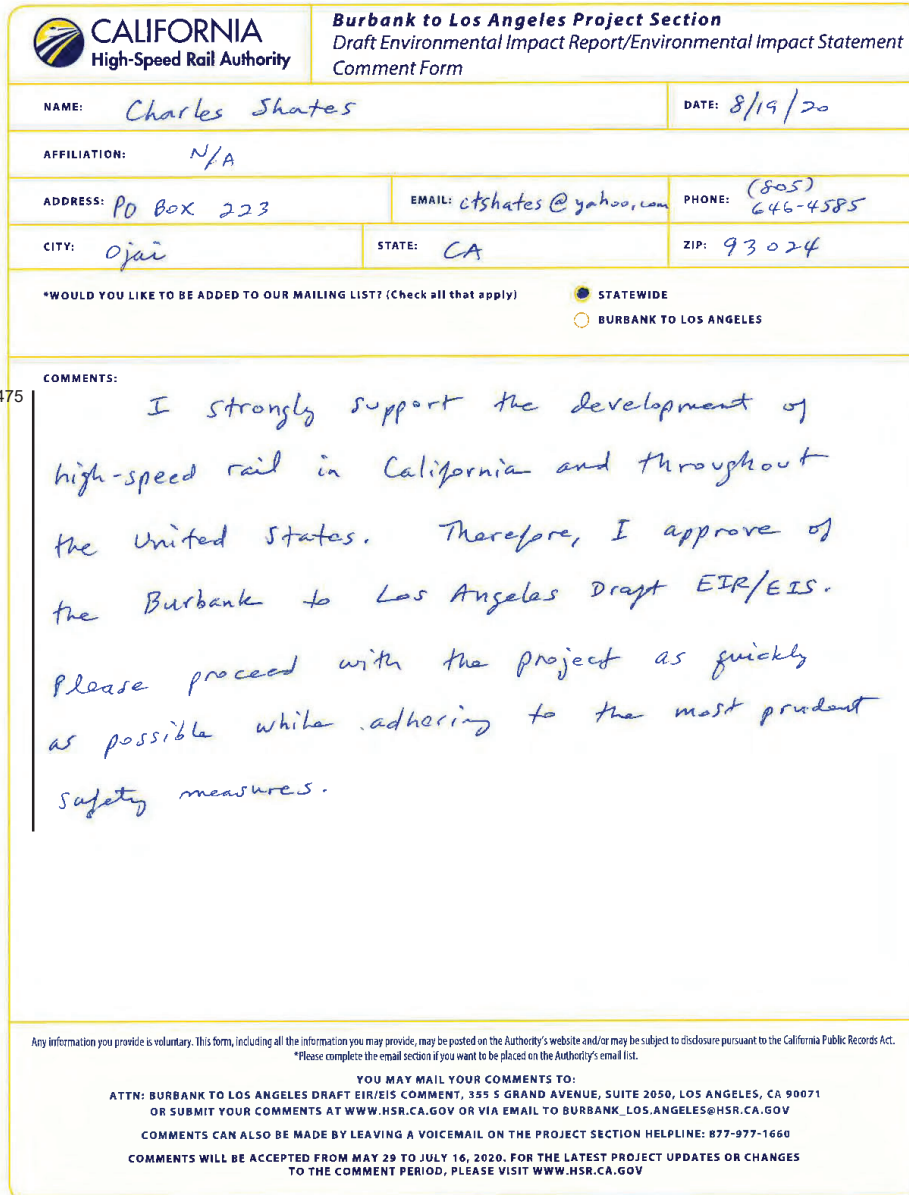 CALIFORNIA
High-Speed Rail Authority
Burbank to Los Angeles Project Section
Draft Environmental Impact Report/Environmental Impact Statement
Comment Form
NAME: Charles Shates
DATE: 8/19/20
AFFILIATION: N/A
ADDRESS: PO Box 223
EMAIL: ctshates@yahoo.com
PHONE: (805)
646-4585
CITY: Ojai
STATE: CA
ZIP: 93024
*WOULD YOU LIKE TO BE ADDED TO OUR MAILING LIST? (Check all that apply)
STATEWIDE
BURBANK TO LOS ANGELES
COMMENTS:
475
I strongly support the development of
high-speed rail in California and throughout
the United States. Therefore, I approve of
the Burbank to Los Angeles Draft EIR/EIS.
Please proceed with the project as quickly
as possible while adhering to the most prudent
safety measures.
Any information you provide is voluntary. This form, including all the information you may provide, may be posted on the Authority's website and/or may be subject to disclosure pursuant to the California Public Records Act.
*Please complete the email section if you want to be placed on the Authority's email list.
YOU MAY MAIL YOUR COMMENTS TO:
ATTN: BURBANK TO LOS ANGELES DRAFT EIR/EIS COMMENT, 355 S GRAND AVENUE, SUITE 2050, LOS ANGELES, CA 90071
OR SUBMIT YOUR COMMENTS AT WWW.HSR.CA.GOV OR VIA EMAIL TO BURBANK_LOS.ANGELES@HSR.CA.GOV
COMMENTS CAN ALSO BE MADE BY LEAVING A VOICEMAIL ON THE PROJECT SECTION HELPLINE: 877-977-1660
COMMENTS WILL BE ACCEPTED FROM MAY 29 TO JULY 16, 2020. FOR THE LATEST PROJECT UPDATES OR CHANGES
TO THE COMMENT PERIOD, PLEASE VISIT WWW.HSR.CA.GOV